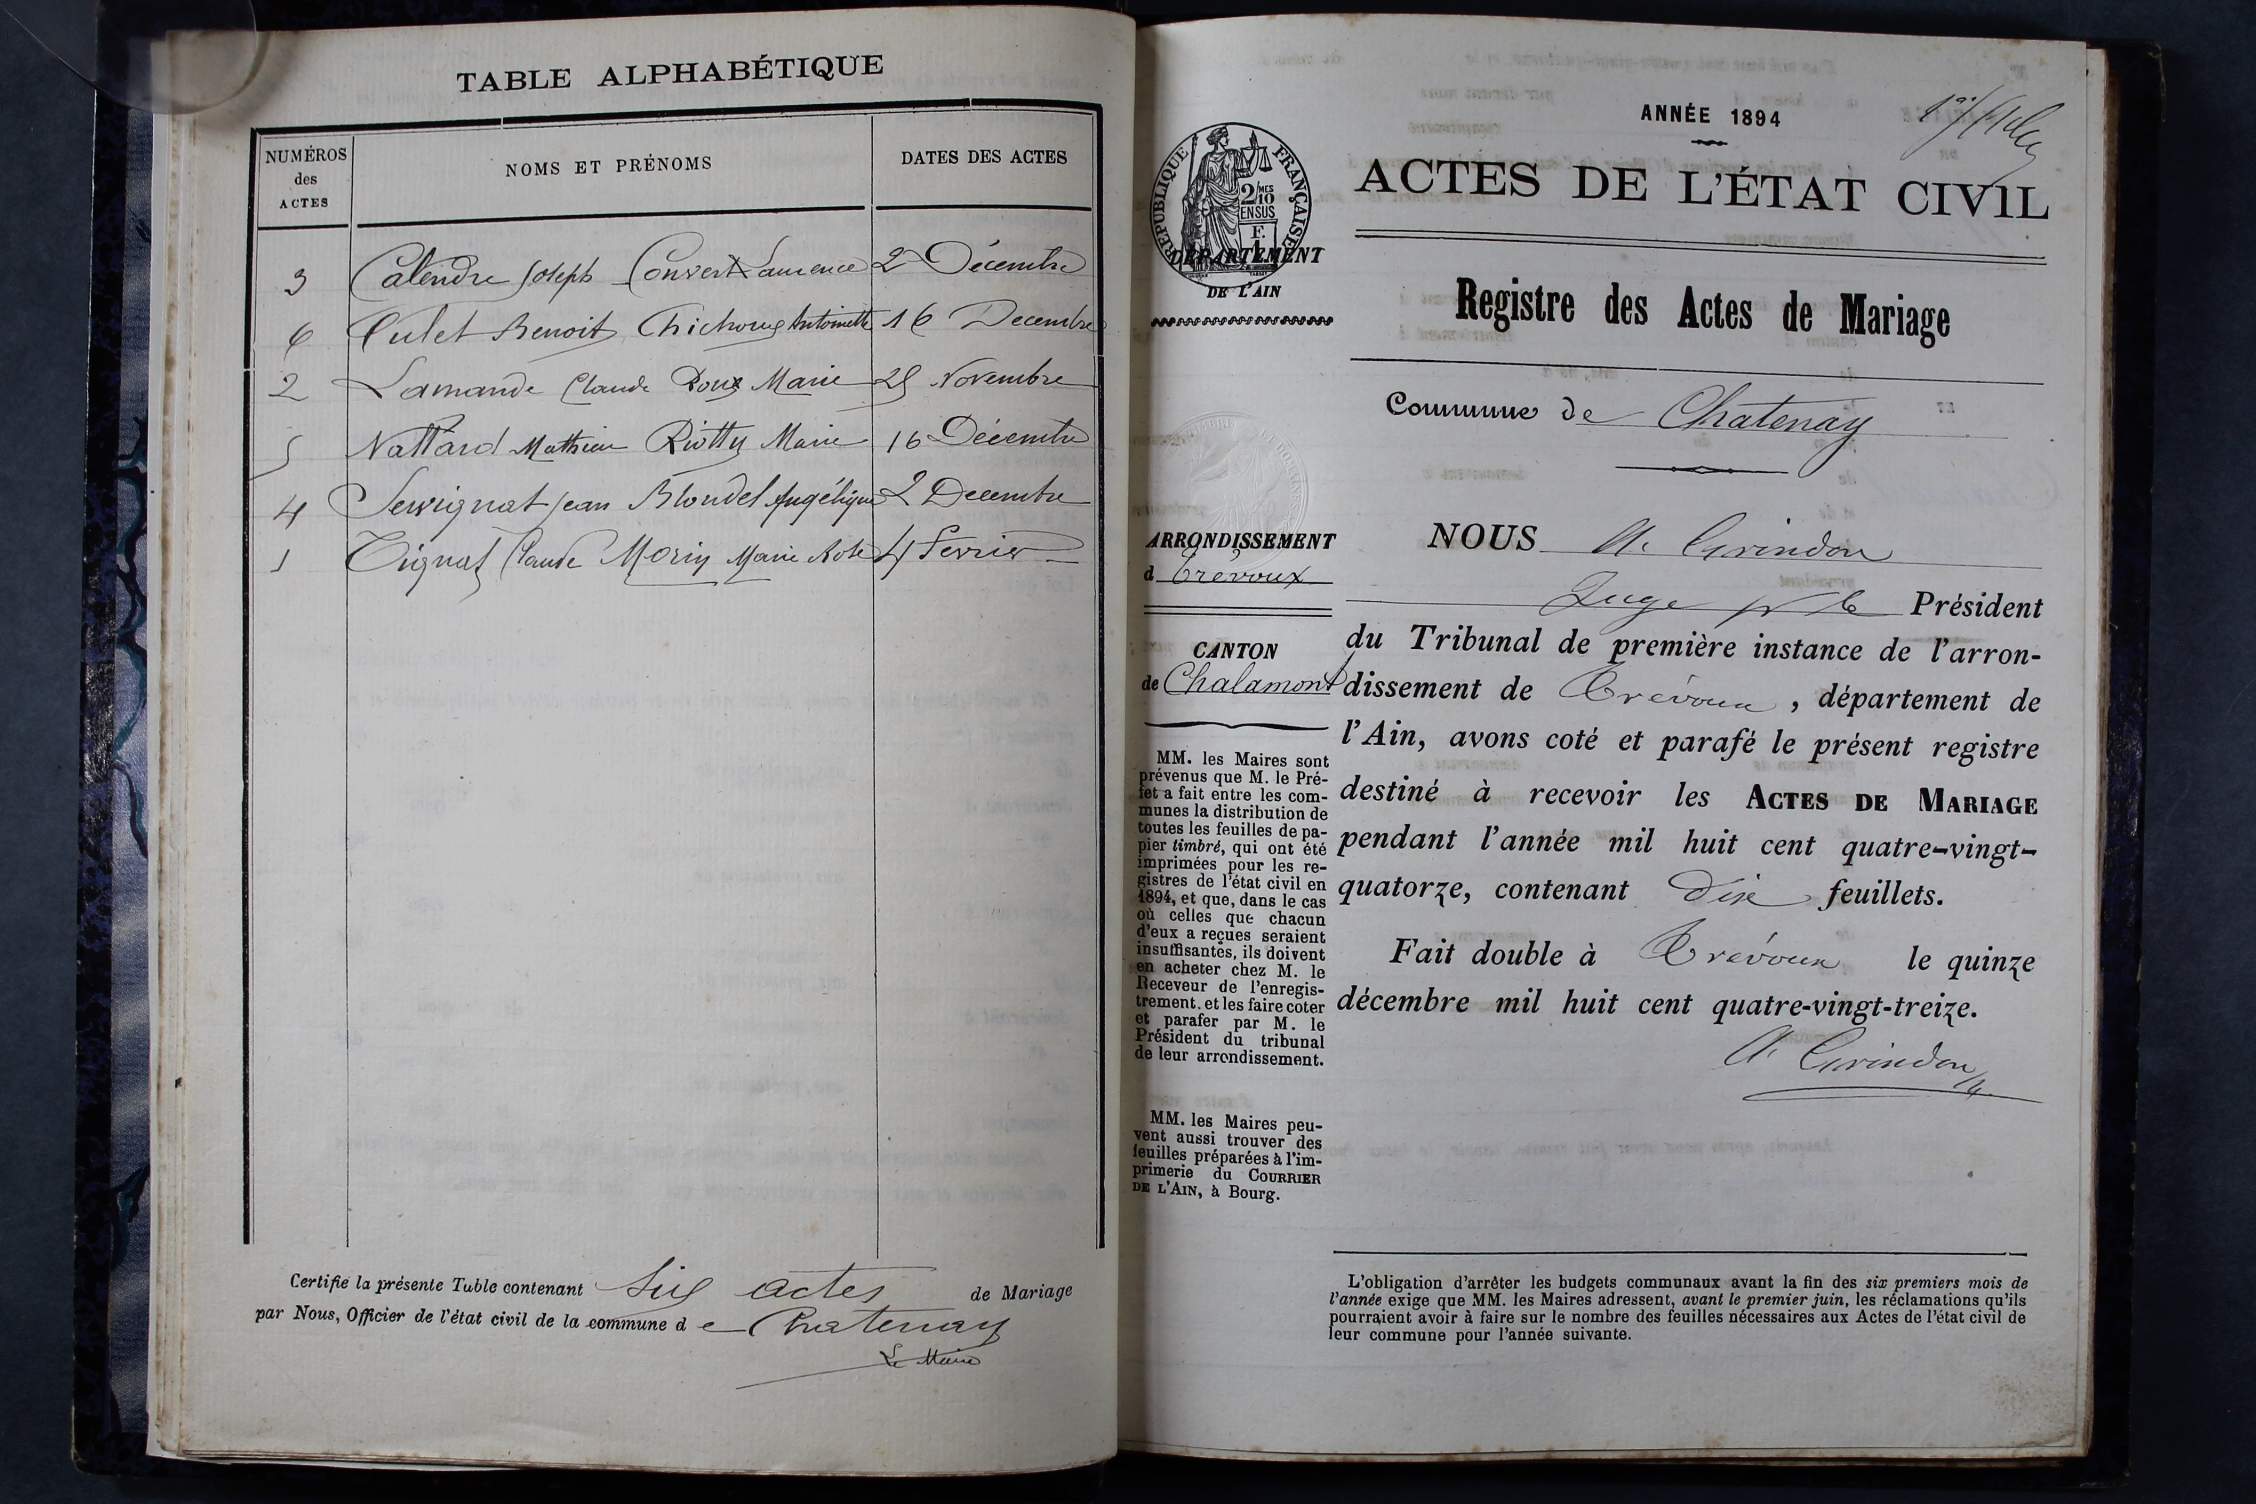 TABLE ALPHABÉTIQUE
NUMÉROS
des
ACTES
NOMS ET PRÉNOMS
DATES DES ACTES
3 Calendre Joseph Convert Laurence 2 Décembre
6 Culet Benoit Antoinette 16 Decembre
2 Lamande Claude Roux Marie Novembre
5 Nallard Mathieu Riotty Marie 16 Décembre
4 Servignat Jean Blondel Angélique 2 Decembre
1 Tignat Claude Morin Marie Rose 4 Février
Certifie la présente Table contenant Six actes de Mariage
par Nous, Officier de l'état civil de la commune de Chatenay
Le Maire
ANNÉE 1894
ACTES DE L'ÉTAT CIVIL
RÉPUBLIQUE FRANÇAISE
2/10MES
EN SUS
F.
1
DÉPARTEMENT
DE L'AIN
Registre des Actes de Mariage
Commune de Chatenay
ARRONDISSEMENT
d Trévoux
CANTON
de Chalamont
MM. les Maires sont
prévenus que M. le Pré-
fet a fait entre les com-
munes la distribution de
toutes les feuilles de pa-
pier timbré, qui ont été
imprimées pour les re-
gistres de l'état civil en
1894, et que, dans le cas
où celles que chacun
d'eux a reçues seraient
insuffisantes, ils doivent
en acheter chez M. le
Receveur de l'enregis-
trement. et les faire coter
et parafer par M. le
Président du tribunal
de leur arrondissement.
MM. les Maires peu-
vent aussi trouver des
feuilles préparées à l'im-
primerie du COURRIER
DE L'AIN, à Bourg.
NOUS A. Grindon
Juge pr le Président
du Tribunal de première instance de l'arron-
dissement de Trévoux, département de
l'Ain, avons coté et parafé le présent registre
destiné à recevoir les ACTES DE MARIAGE
pendant l'année mil huit cent quatre-vingt-
quatorze, contenant Dix feuillets.
Fait double à Trévoux le quinze
décembre mil huit cent quatre-vingt-treize.
A. Grindon
L'obligation d'arrêter les budgets communaux avant la fin des six premiers mois de
l'année exige que MM. les Maires adressent, avant le premier juin, les réclamations qu'ils
pourraient avoir à faire sur le nombre des feuilles nécessaires aux Actes de l'état civil de
leur commune pour l'année suivante.